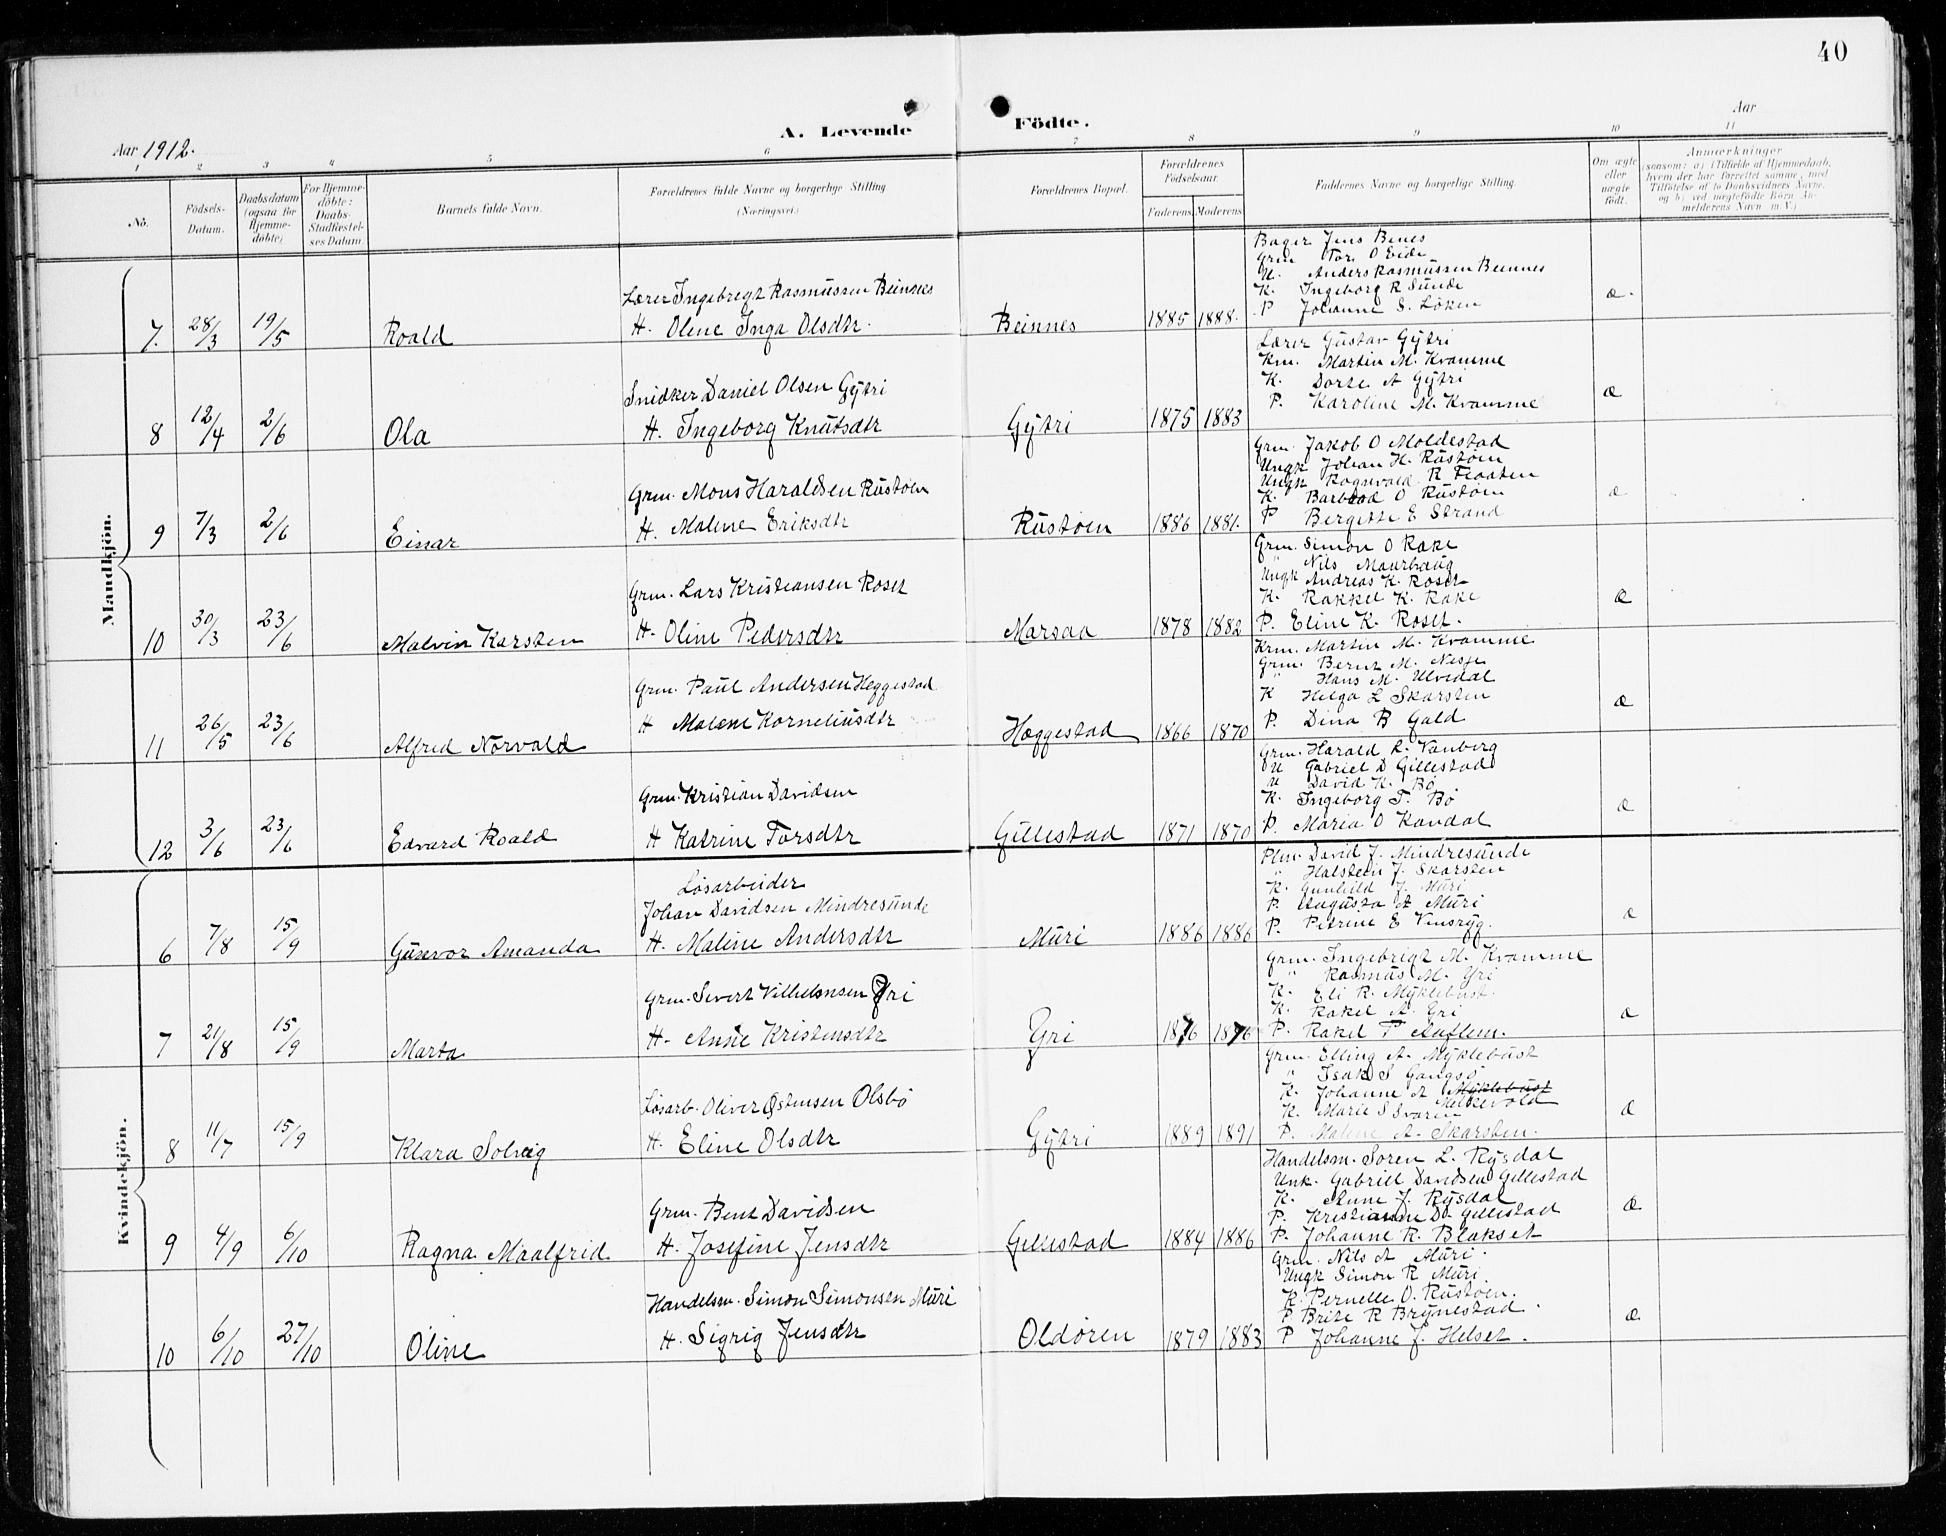 40
A. Levende Födte.
Aar 1912.
Aar
1 2 3 4 5 6 7 8 9 10 11
No.
Födsels-Datum.
Daabsdatum (ogsaa for Hjemmedöbte)
For Hjemmedöbte: Daabs-Stadfæstelses Datum
Barnets fulde Navn.
Forældrenes fulde Navne og borgerlige Stilling (Næringsvei.)
Forældrenes Bopæl.
Forældrenes Födselsaar.
Faderens Moderens
Faddernes Navne og borgerlige Stilling.
Om ægte eller uægte födt.
Anmærkninger
(saasom: a) i Tilfælde af Hjemmedaab, hvem der har forrettet samme, med Tilföielse af to Daabsvidners Navne, og b) ved uægtefödte Börn Anmelderens Navn m. V.)
Mandkjön.
7. 28/3 19/5 Roald
Lærer Ingebregt Rasmussen Beinnes
H. Oline Inga Olsdtr.
Beinnes 1885 1888.
Bager Jens Benes
Grm Tor O Eide
U. Anders Rasmussen Beinnes
K. Ingeborg R Sunde
P Johanne S. Löken
æ.
8 12/4 2/6 Ola
Snidker Daniel Olsen Gytri
H. Ingeborg Knutsdtr
Gytri 1875 1883
Lærer Gustav Gytri
Km. Martin M. Kvamme
K. Dorte A Gytri
P. Karoline M. Kvamme
æ
9 7/3 2/6 Einar
Grm. Mons Haraldsen Rustöen
H. Maline Eriksdtr
Rustöen 1886 1881.
Grm. Jakob O Moldestad
Ungk Johan H. Rustöen
Ungk Ragnvald R Floaten
K. Barbroa O Rustöen
P Bergitte E Strand
æ
10 30/3 23/6 Malvin Karsten
Grm. Lars Kristiansen Roset
H. Oline Pedersdtr
Marsaa 1878 1882
Grm. Simon O Rake
" Nils Maurbaug
Ungk Andreas K. Roset
K. Rakkel K. Rake
P. Eline K. Roset.
æ
11 26/5 23/6 Alfred Norvald
Grm. Paul Andersen Heggestad
H Malene Korneliusdtr
Heggestad 1866 1870
Krm. Martin M. Kvamme
Grm. Bernt M. Nesje
" Hans M. Ulvedal
K Helga L Skarsten
P. Dina B Gald
æ
12 3/6 23/6 Edvard Roald
Grm. Kristian Davidsen
H Katrine Torsdtr
Gillestad 1871 1870
Grm. Harald R. Vanberg
U Gabriel D Gillestad
U David K. Bö
K. Ingeborg T. Bö
P. Maria O Kandal
æ
Kvindekjön.
6 7/8 15/9 Gunvor Amanda
Lösarbeider
Johan Davidsen Mindresunde
H. Maline Andersdtr
Muri 1886 1886
Plm. David J. Mindresunde
" Halstein J. Skarsten
K. Gunhild J. Muri
P. Augusta A Muri
P. Petrine E Vinsryg.
æ
7 21/8 15/9 Marta
Grm. Sivert Villumsen Yri
H. Anne Kristensdtr
Yri 1876 1876
Grm. Ingebrigt M. Kvamme
" Rasmus M. Yri
K. Eli R. Myklebust.
K. Rakel A. Yri
P. Rakel P Aaflem.
æ
8 11/7 15/9 Klara Solveig
Lösarb. Oliver Östensen Olsbö
H. Eline Olsdtr
Gytri 1889 1891
Grm. Elling A. Myklebust
" Isak S Gangsö
K. Johanne A Myklebust Melkevold
K. Marie S
P. Malene A. Skarsten.
æ
9 4/9 6/10 Ragna Maalfrid
Grm. Bent Davidsen
H. Josefine Jensdtr
Gillestad 1884 1886
Handelsm. Soren L. Rysdal
Unk. Gabriel Davidsen Gillestad
K. Anne J. Rysdal
P. Kristianne D. Gillestad
P. Johanne R. Blakset
æ
10 6/10 27/10 Oline
Handelsm. Simon Simonsen Muri
H. Sigrig Jensdtr
Oldören 1879 1883
Grm. Nils A Muri.
Ungk Simon R Muri.
K. Pernelle O. Rustöen.
P Brite R Brynestad.
P Johanne J. Helset.
æ